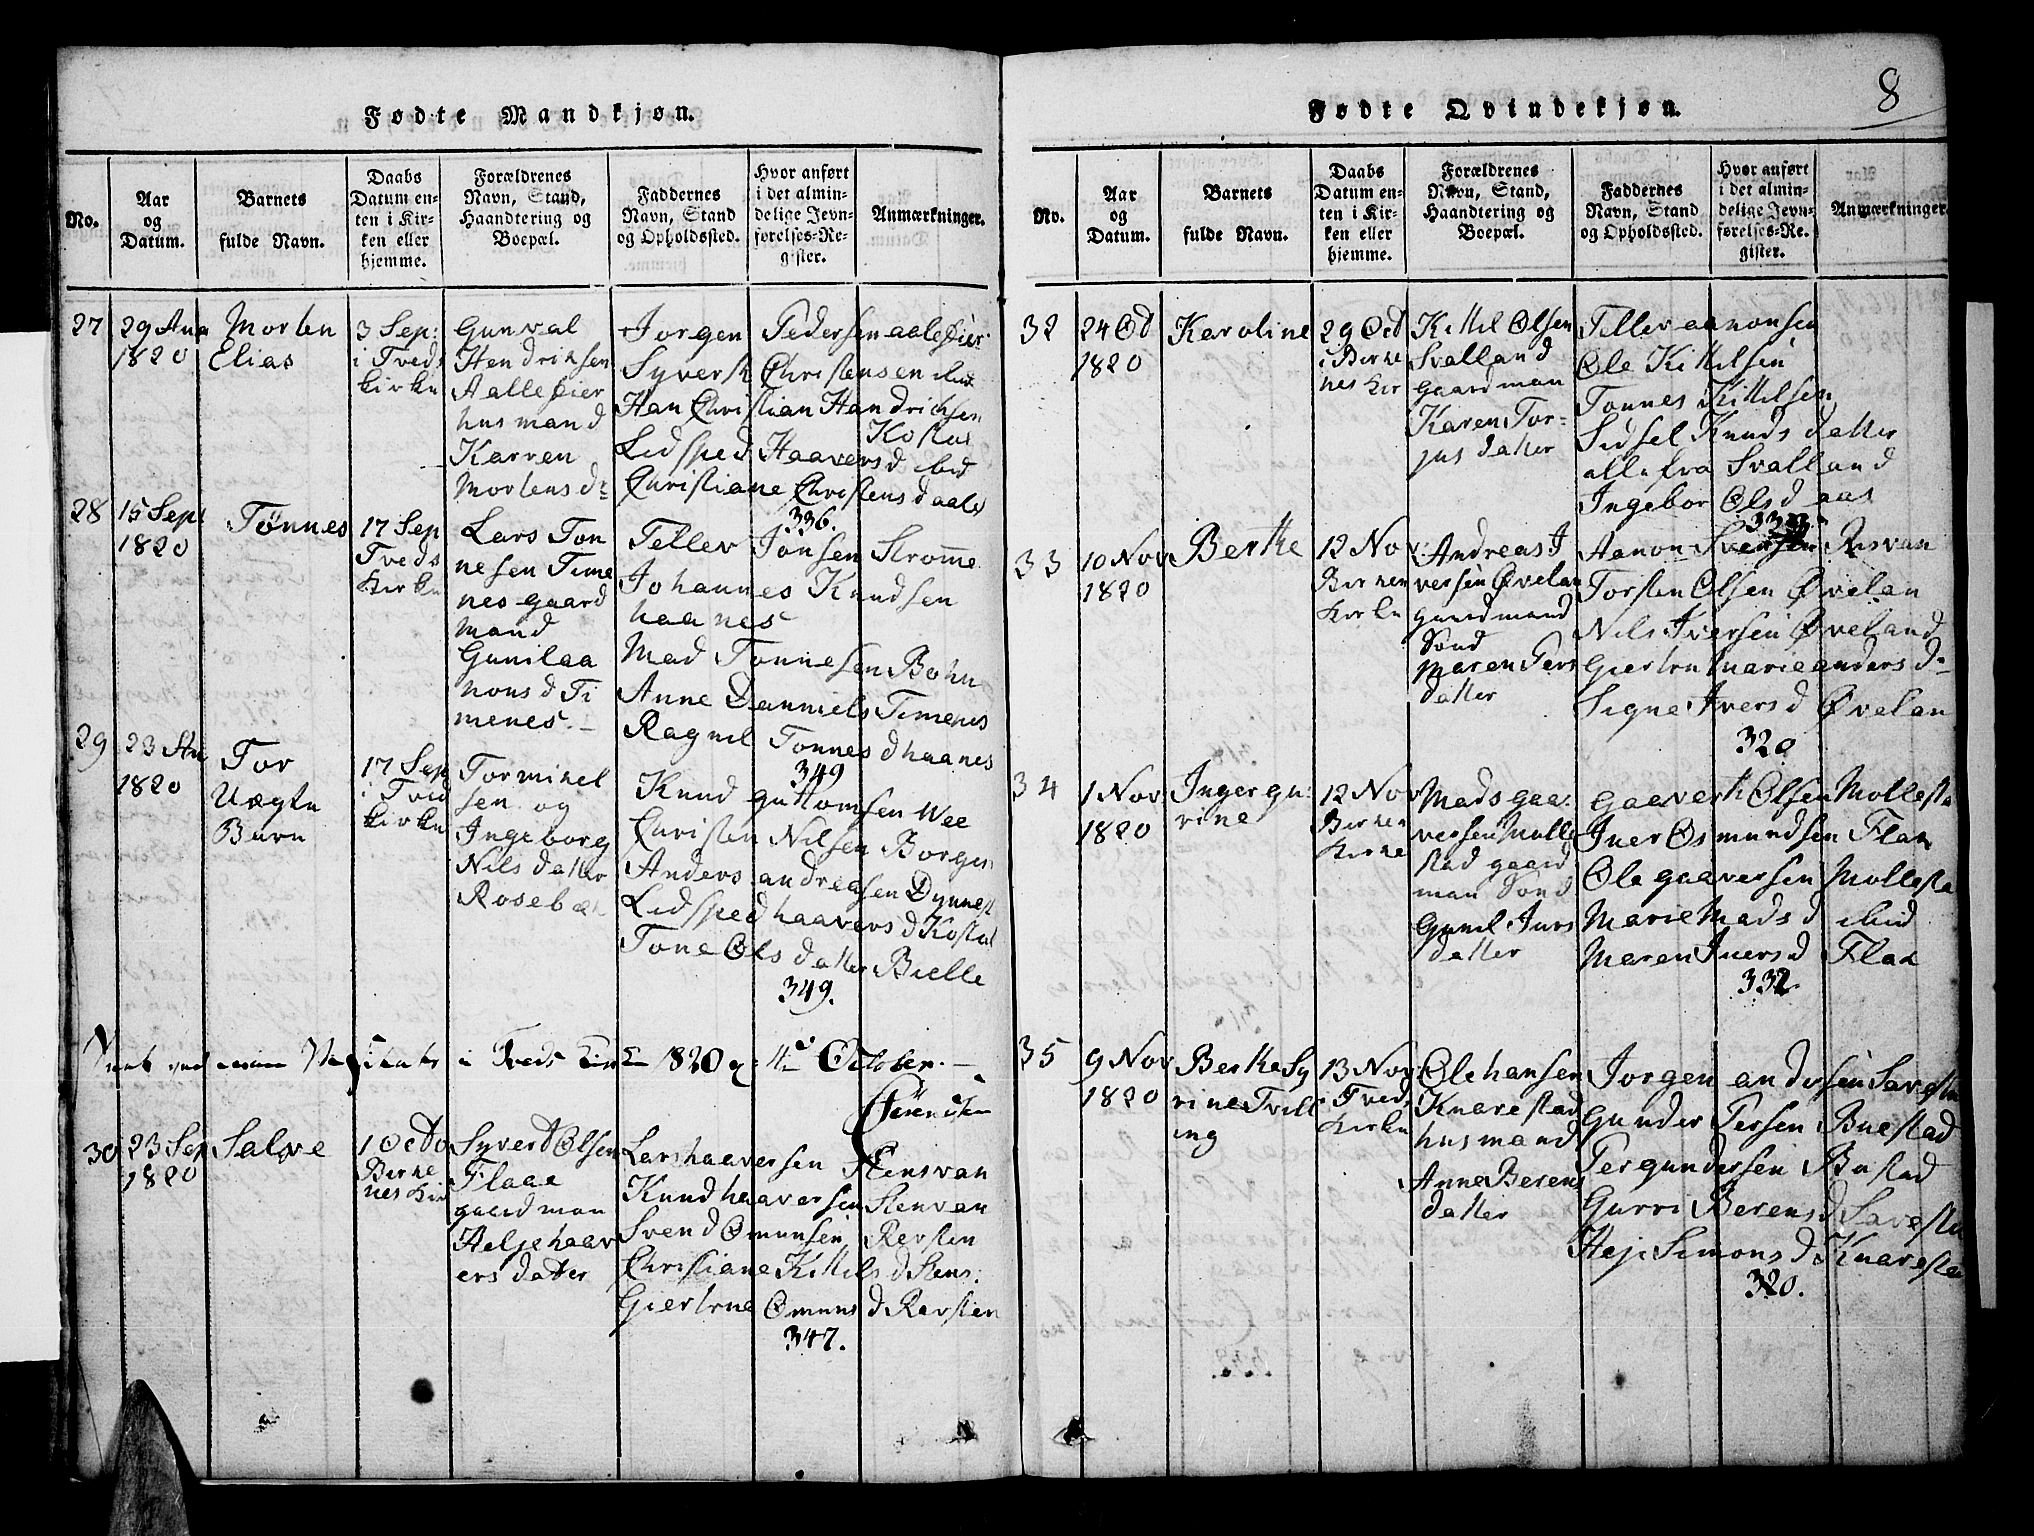 Fødte Mandkjøn.
No.
Aar og Datum.
Barnets fulde Navn.
Daabs Datum enten i Kirken eller hjemme.
Forældrenes Navn, Stand, Haandtering og Boepæl.
Faddernes Navn, Stand og Opholdssted.
Hvor anført i det almindelige Jevnførelses-Register.
Anmærkninger.
27
29 Aug
1820
Morten
Elias
3 Sep:
i Tveds
Kirke
Gunval
Hendriksen
Aalleøier
husmand
Karren
Mortensd
Jorgen Pedersen aaleøier
Syvert Christensen ibid
Han Christian Handriksen
Kostøl
Ledsped Haaversd ibid
Christiane Christensd aale
336.
28
15 Sept
1820
Tønnes
17 Sep
Tveds
Kirke
Lars Ton
nesen Time
nes gaard
mand
Gunil aa
nons d Ti
menes.
Tellev Jonsen Stromme
Johannes Knudsen
haanes
Mad Tonnesen Bohn
Anne Danniels Timenes
Ragnil Tonnes d haanes
349
29
23
1820
Tor
Uægte
Barn
17 Sep
i Tved
Kirke
Tor mikel
sen og
Ingeborg
Nils datter
Rosebæk
Knud guttomsen Wee
Christen Nilsen Borgen
Anders andreasen Dynnest
Ledsped haavers d Kostøl
Tone Ols datter Bielle
349.
i Tveds Kirke 1820 d 4de October.
30
23 Sep
1820
Salve
1 Octo
Birke
nes Kir
Syvert Olsen
Flaae
gaardman
Aelje haav
ers datter
Lars haaversen Stensvan
Knud haaversen Stenvan
Svend Omunsen Rersten
Christiane Kittils d Stens:
Giertrue Omuns d Rersten
347.
8
Fødte Qvindekjøn.
No.
Aar og Datum.
Barnets fulde Navn.
Daabs Datum enten i Kirken eller hjemme.
Forældrenes Navn, Stand, Haandtering og Boepæl.
Faddernes Navn, Stand og Opholdssted.
Hvor anført i det almindelige Jevnførelses-Register.
Anmærkninger.
32
24 Oct
1820
Karoline
29 Oct
i Birke
nes Kir
Kittil Olsen
Svalland
gaardman
Karen Tor-
jus datter
Tellev aanonsen
Ole Kittilsen
Tonnes Kittilsen
Sidsel Knuds datter
alle fra Svalland
Ingebor Olsd aas
33
10 Nov
1820
Berthe
12 Nov
Birken
Kirke
Andreas I
versen Øvelan
gaardmand
Sønd
Maren Pers
datter
Aanon Svensen Risvan
Torsten Olsen Øvelan
Nils Iversen Øveland
Giertru Marie anders d
Signe Ivers d Øvelan
320
34
1 Nov
1820
Inger gu
rine
12 Nov
Birken
Kirke
Mads gaa
versen Molle
stad gaard
man Sønd
Gunil Ivers
datter
Gaavert Olsen Mollesta
Iver Osmundsen Flak
Ole gaaversen Mollesta
Marie Mads d ibid
Maren Ivers d Flak
332
35
9 Nov
1820
Berthe Sy
rine Tvill
ing
13 Nov
i Tveds
Kirke
Ole hansen
Knarestad
husmand
Anne Berens
datter
Jorgen andersen Savesta
Gunder Persen Buestad
Per gundersen Bustad
Gurri Berens d Savesta
Heje Simons d Knaresta
320.